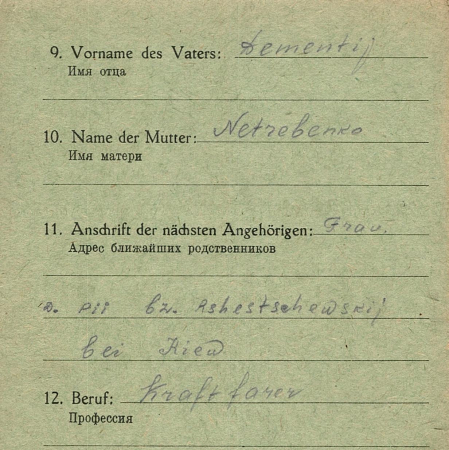 9. Vorname des Vaters: Dementij
Имя отца
10. Name der Mutter: Netrebenko
Имя матери
11. Anschrift der nächsten Angehörigen: Frau.
Адрес ближайших родственников
D. bz.
bei Kiew
12. Beruf: Kraftfarer
Профессия